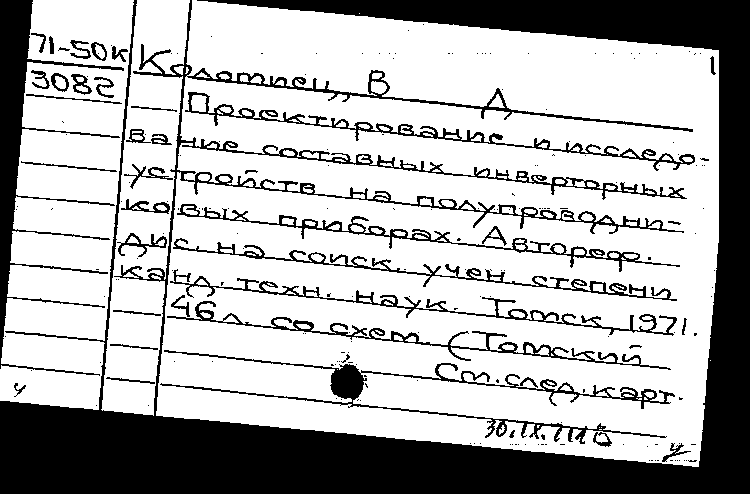 1
71-50к
3082
Колотпец,, В Д
Проектирование и исследо-
вание составных инверторных
устройств на полупроводни-
ковых приборах. Автореф.
дис. на соиск. учен. степени
канд. техн. наук. Томск, 1971.
46 л. со схем. (Томский
См. след. карт.
30.IX.71
ч ч